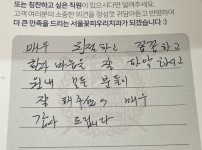 또는 칭찬하고 싶은 직원이 있으시다면 알려주세요.
고객 여러분의 소중한 의견을 정성껏 귀담아듣고 반영하여
더 큰 만족을 드리는 서울꽃피우리치과가 되겠습니다.
매우 친절하고 꼼꼼하고
환자 마음을 잘 파악 하시고
원내 모든 분들이
잘 해주셔서 매우
감사 드립니다